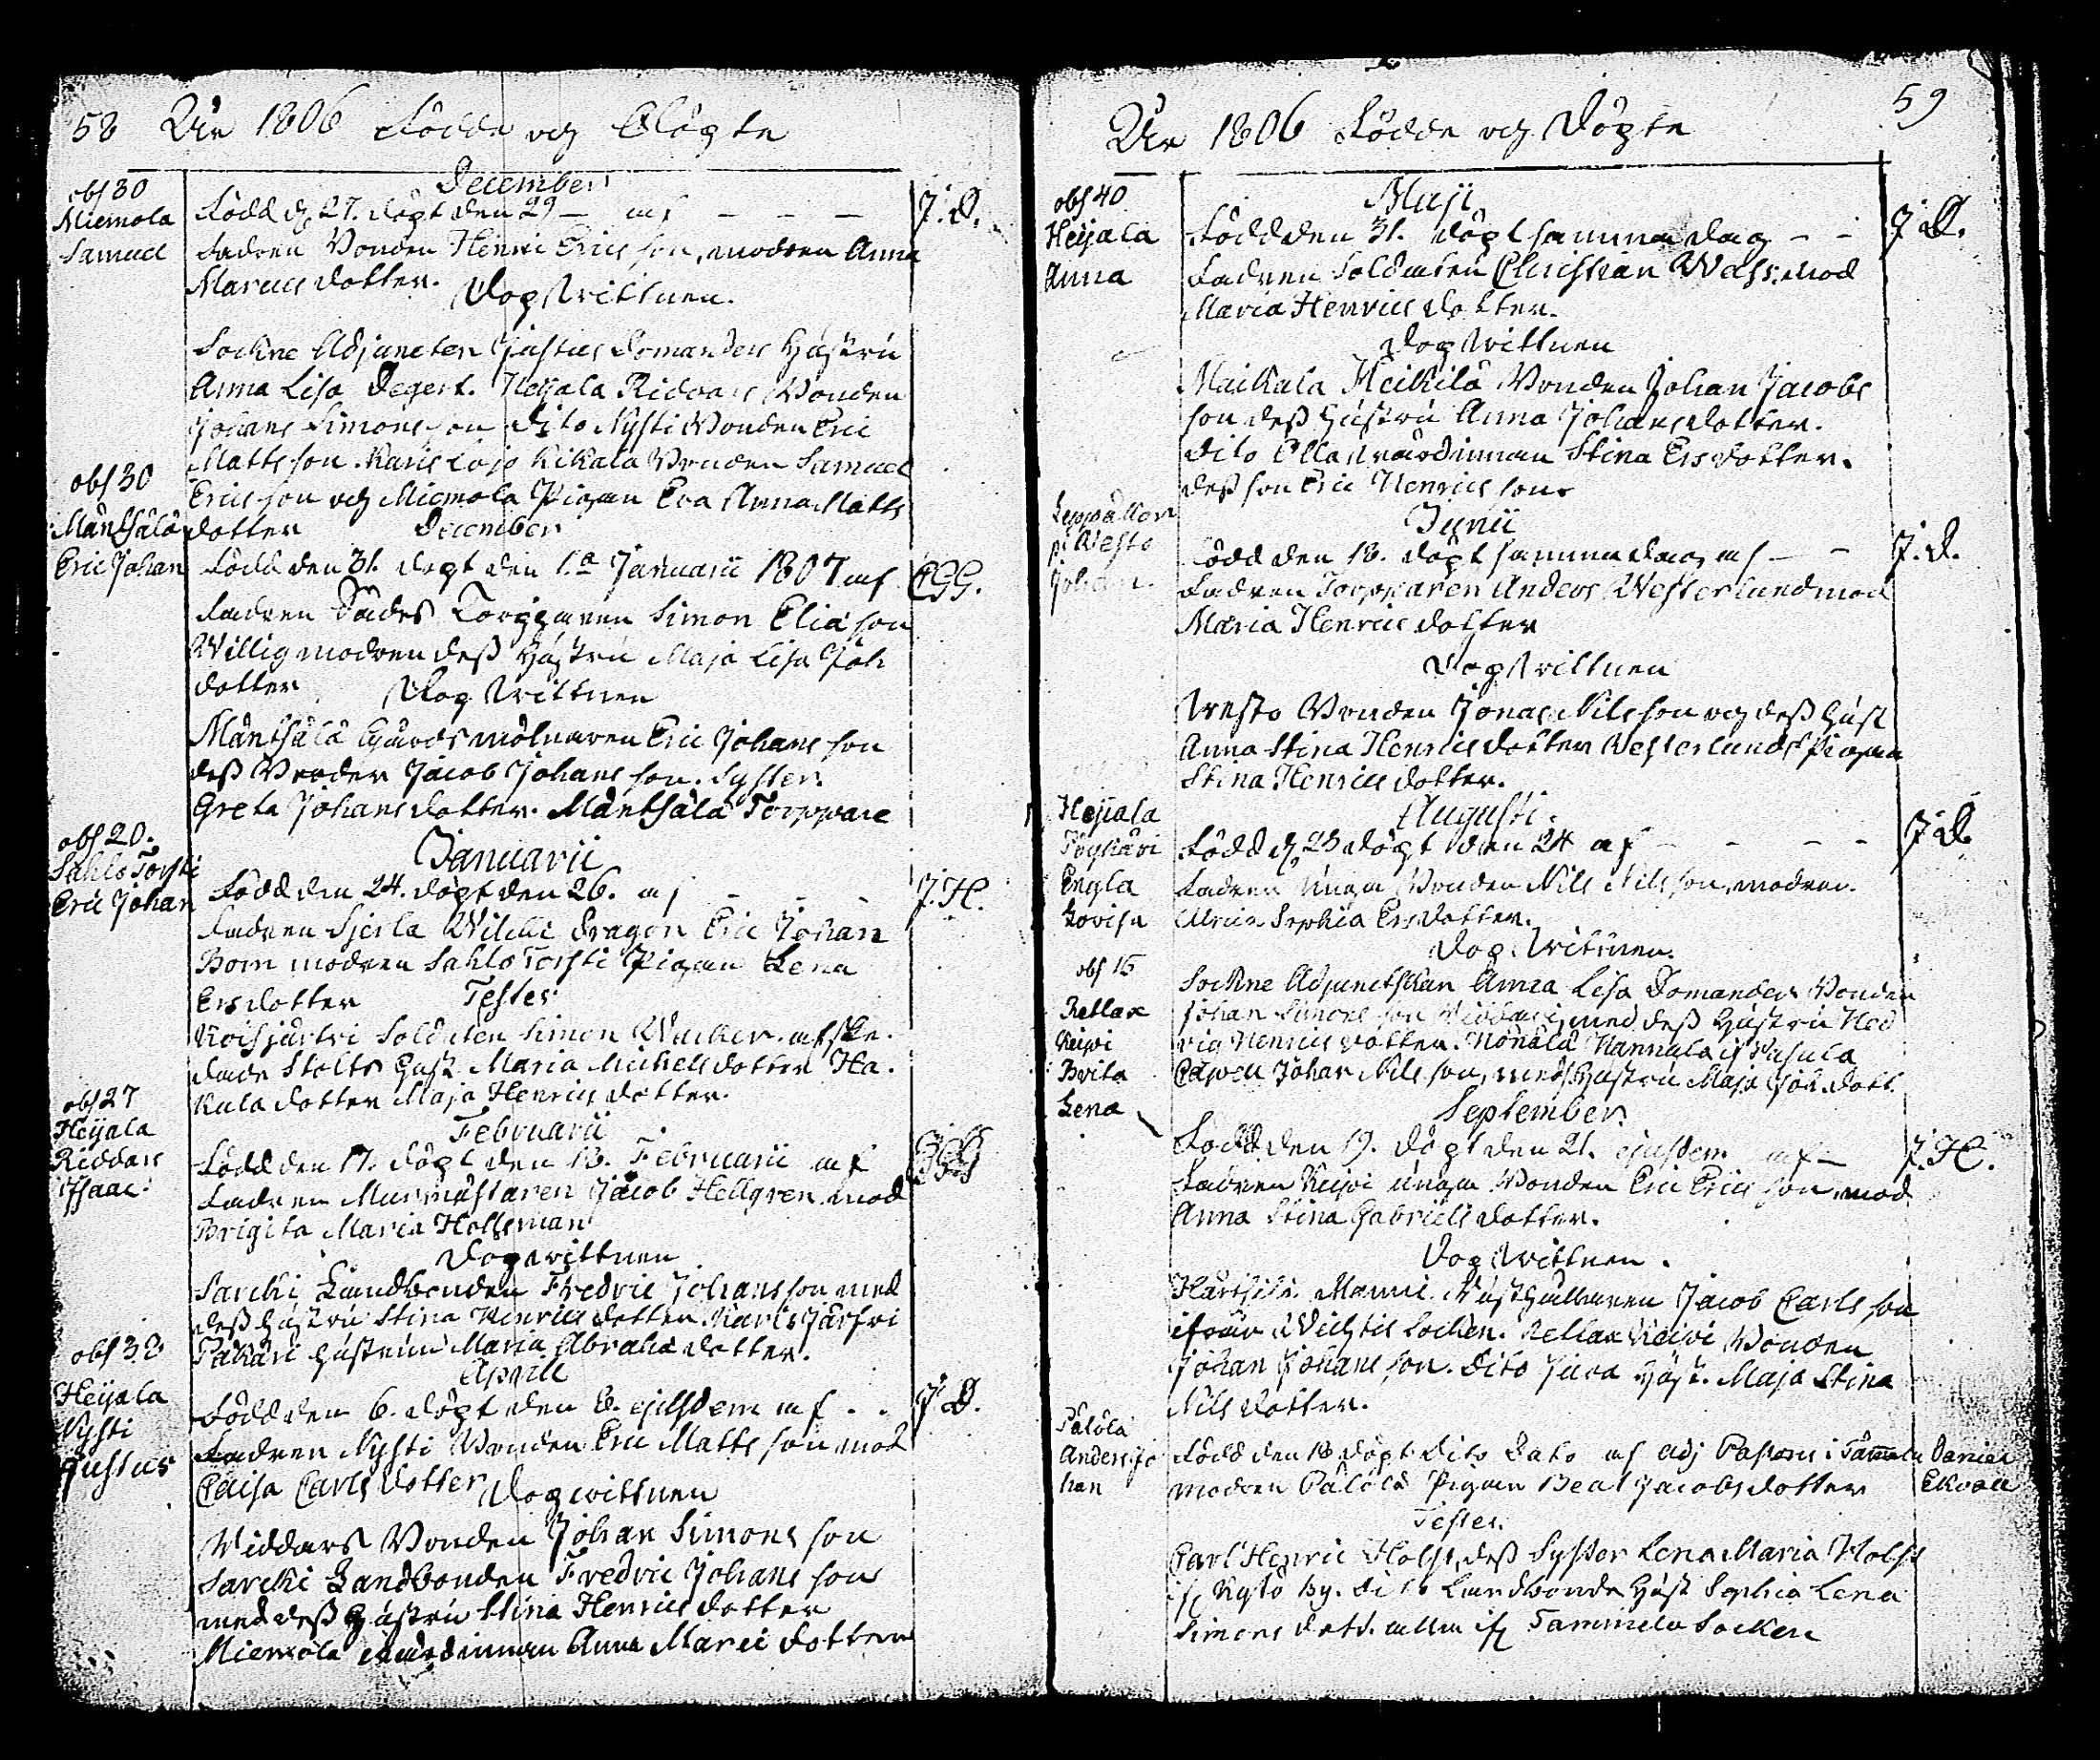 58 År 1806 Födde och Döpte
December
obs 30
Miemola
Samuel
Född d. 27. döpt den 29 — af — — — J. D.
Fadren Bonden Henric Ericsson, modren Anna
Marcusdotter.
Dopwittnen.
Sockne Adjuncten Justus Domanders Hustru
Anna Lisa Degert. Heijala Riddars Bonden
Johans Simonsson dito Nysti Bonden Eric
Mattsson. Karislojo Kikala Bonden Samuel
Ericsson och Miemola Pigan Eva Anna Matts
dotter
December
obs 30
Mänthälä
Eric Johan
Född den 31. döpt den 1.a Januarii 1807 af EGG.
Fadren Torpparen Simon Eliæson
Willig modren dess Hustru Maja Lisa Joh
dotter
Dop Wittnen
Mänthälä Gårds mölnaren Eric Johansson
dess Broder Jacob Johansson. Syster
Greta Johansdotter. Mänthälä Torppare
Januarii
obs 20.
Sahlo Torsti
Eric Johan
Född den 24. döpt den 26. af — — — J. H.
Fadren Sjerla Wilcki Dragon Eric Johan
Bom modren Sahlo Torsti Pigan Lena
Ersdotter
Testes
Koisjärvi Soldaten Simon Wacker. afske.
dade Stolts Hust. Maria Michelsdotter Ha.
kala dotter Maja Henricsdotter.
Februarii
obs 27
Heijala
Riddars
Isaac.
Född den 17. döpt den 18. Februarii af EGG
Fadren Murmästaren Jacob Hellgren mod
Brigita Maria Holtsman
Dopwittnen
Sarcki Landbonden Fredric Johansson med
dess Hustru Stina Henricsdotter Karisjärfvi
Pakari hustrun Maria Abrahadotter.
Aprill
obs 38
Heijala
Nysti
Justus
Född den 6. döpt den 8. ejusdem af . . J. D.
Fadren Nysti Bonden Eric Mattsson, mod
Caisa Carlsdotter
Dopwittnen
Riddars Bonden Johan Simonsson
Sarcki Landbonden Fredric Johansson
med dess Hustru Stina Henricsdotter
Miemola wärdinnan Anna Marci dotter
År 1806 Födde och Döpte 59
Maji
obs 40
Heijala
Anna
Född den 31. döpt samma dag — — J. D.
Fadren Soldaten Christian Wass: Mod
Maria Henricsdotter.
Dop Wittnen
Maikala Heikilä Bonden Johan Jacobs
son dess Hustru Anna Johansdotter.
Dito Olla wärdinnan Stina Ersdotter.
dess son Eric Henricsson
Junii
Leppälton
p. Westo
Johan.
Född den 18. döpt samma dag af — — J. D.
Fadren Torpparen Anders Westerlund mod
Maria Henricsdotter
Dop Wittnen
Westo Bonden Jonas Nilsson och dess Hust
Anna Stina Henricsdotter Westerlunds Pigan
Stina Henricsdotter.
Augusti.
Heijala
Engla
Lovisa
Född d. 23 döpt den 24 af — — — — J. D.
Fadren Unga Bonden Nils Nilsson, modren
Ulrica Sophia Ersdotter.
Dop Wittnen.
Sockne Adjunctskan Anna Lisa Domander Bonden
Johan Simonsson Riddars, med dess Hustru Hed
vig Henricsdotter. Nonälä Nannula if Pusula
Capell Johan Nilsson, med Hustru Maja Joh dott
September.
obs 16
Retlax
Keivi
Brita
Lena
Född den 19. döpt den 21. ejusdem af — J. H.
Fadren Keivi unga Bonden Eric Ericsson, mod
Anna Stina Gabrielsdotter.
Dop Wittnen.
Manni Rusthållaren Jacob Carlsson
ifrån Wichtis Socken. Retlax Keivi Bonden
Johan Johansson. Dito Jura Hust. Maja Stina
Nilsdotter.
Palola
Anders Jo
han
Född den 18 döpt dito dato af Adj Pastoris i Tamela Daniel
Ekvall
modren Palola Pigan Beat Jacobsdotter
Testes.
Carl Henric Holst, dess Syster Lena Maria Holst
if. By. dito Landbonde Hust Sophia Lena
Simons dott. alla if Tammela Socken